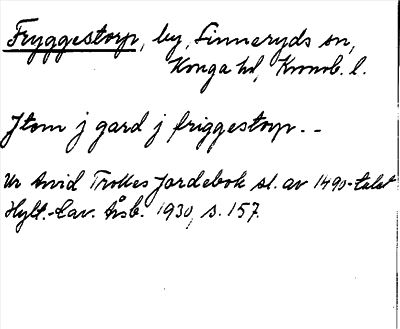 Fryggestorp, by, Linneryds sn,
Konga hd, Kronob. l.
Jtem j gard j friggestorp. –
Ur Arvid Trolles Jordebok sl. av 1490-talet
Hylt.-Cav. Årsb. 1930, s. 157.